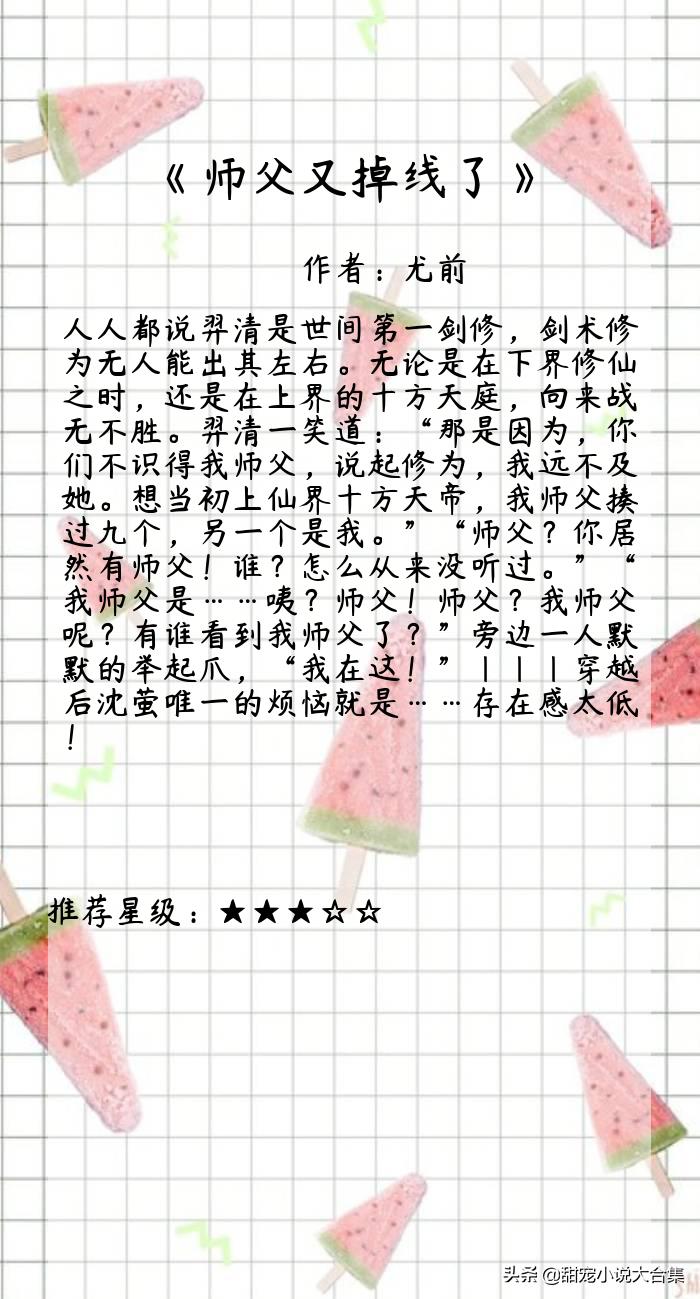 《师父又掉线了》
作者：尤前
人人都说羿清是世间第一剑修，剑术修
为无人能出其左右。无论是在下界修仙
之时，还是在上界的十方天庭，向来战
无不胜。羿清一笑道：“那是因为，你
们不识得我师父，说起修为，我远不及
她。想当初上仙界十方天帝，我师父揍
过九个，另一个是我。”“师父？你居
然有师父！谁？怎么从来没听过。”“
我师父是……咦？师父！师父？我师父
呢？有谁看到我师父了？”旁边一人默
默的举起爪，“我在这！”｜｜｜穿越
后沈萤唯一的烦恼就是……存在感太低
！
推荐星级：★★★☆☆
头条 @甜宠小说大合集